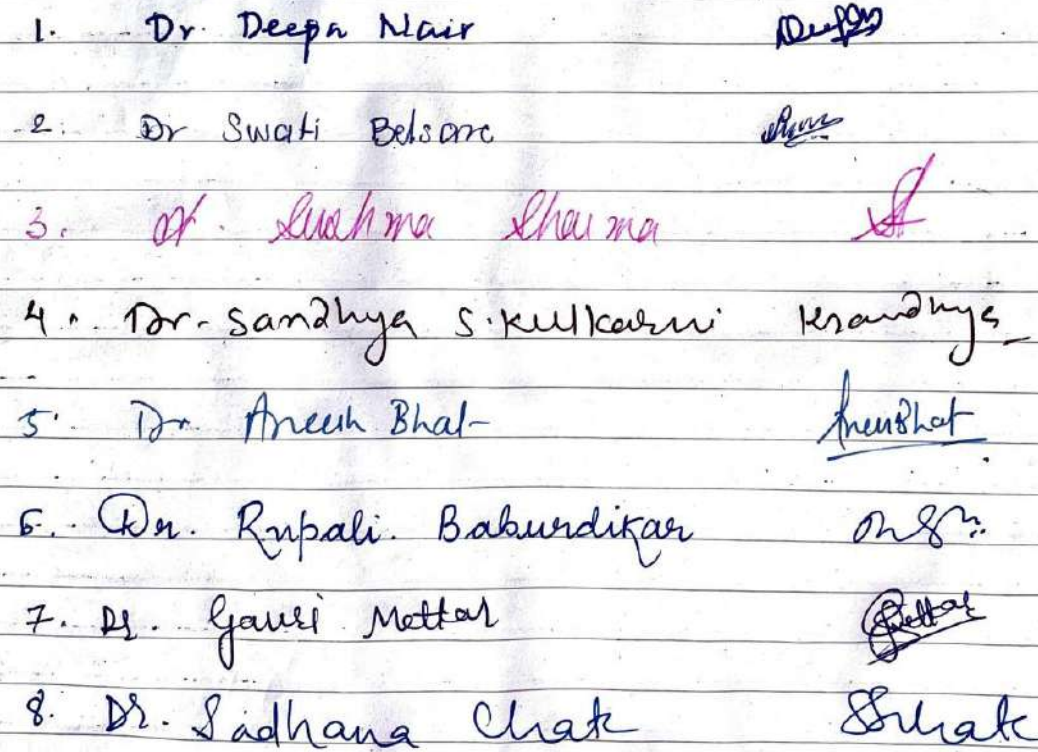 1. Dr Deepa Nair
2. Dr Swati Belsare
3. Dr. Sushma Sharma
4. Dr. Sandhya S. Kulkarni Ksandhya
5. Dr. Aneesh Bhat AneeBhat
6. Dr. Rupali. Baburdikar
7. Dr. Gauri Mettar
8. Dr. Sadhana Chate